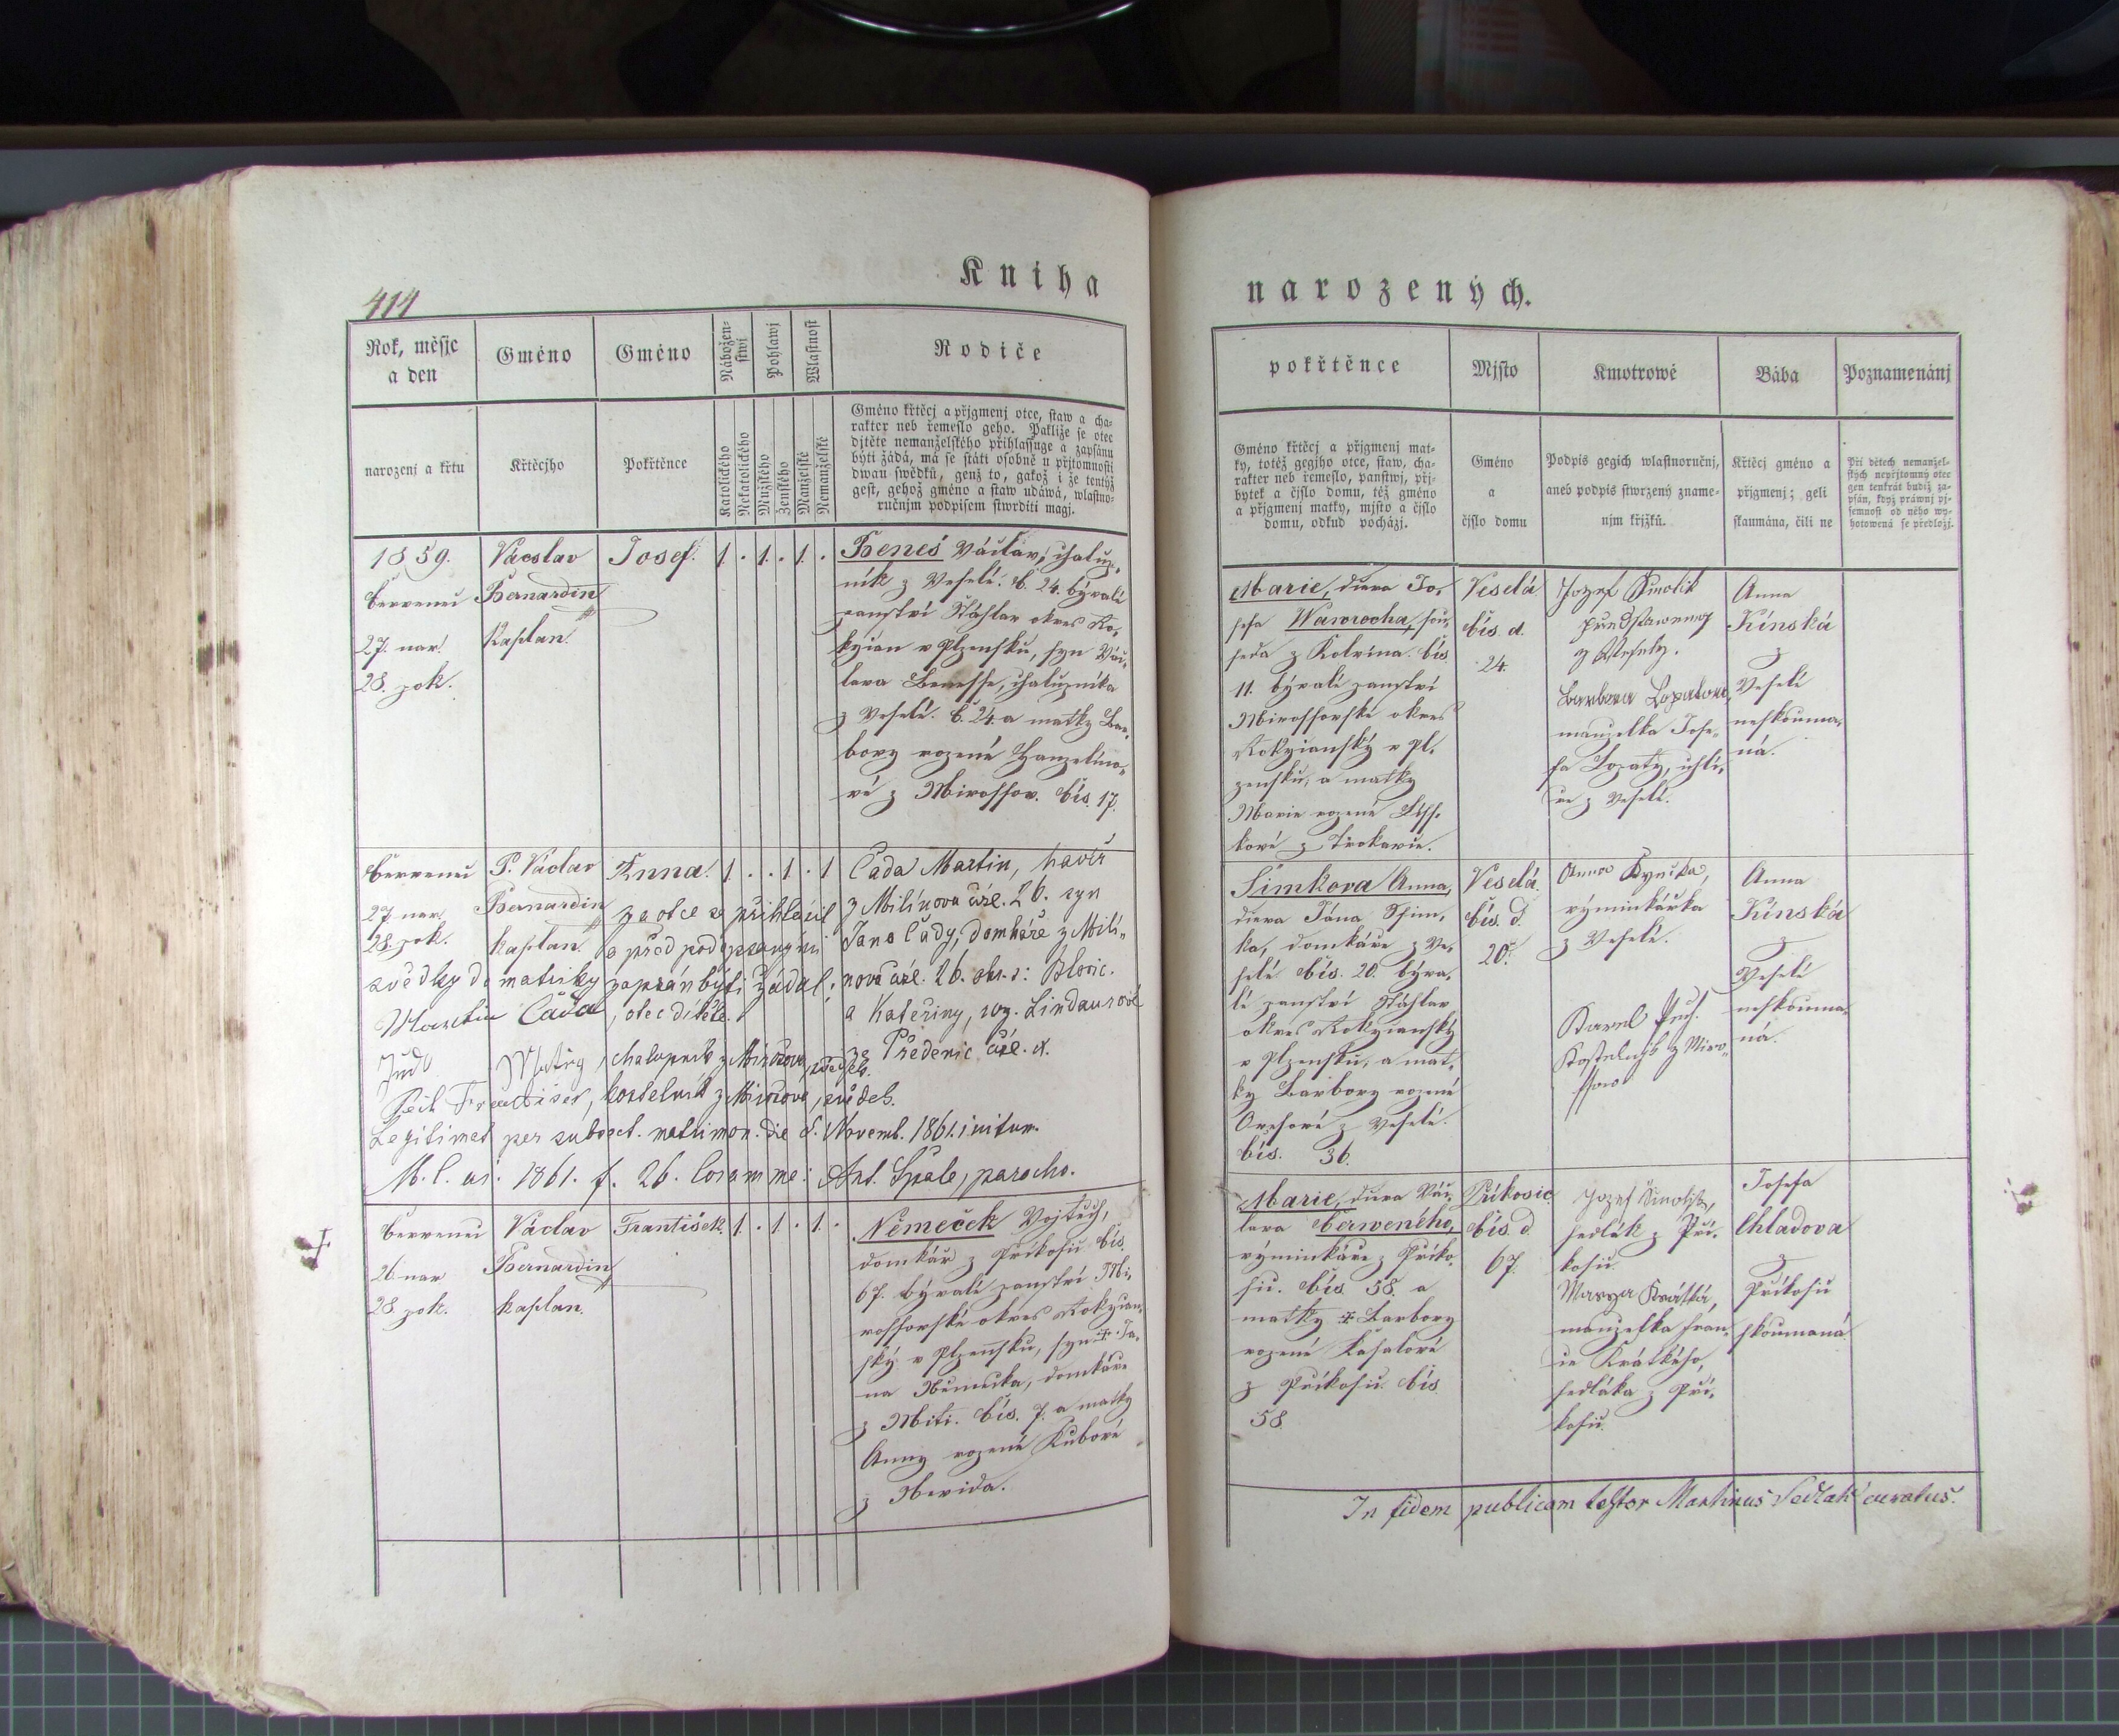 414
Kniha
Rok, měsjc
a den
Gméno
Gméno
Nábožen-
stwj
Pohlawj
Wlastnost
Rodiče
narozenj a křtu
Křtěcjho
Pokřtěnce
Katolického
Nekatolického
Mužského
Ženského
Manželské
Nemanželské
Gméno křtěcj a přjgmenj otce, staw a cha-
rakter neb řemeslo geho. Pakliže se otec
djtěte nemanželského přihlassuge a zapsánu
býti žádá, má se státi osobně u přjtomnosti
dwau swědků, genž to, gakož i že tentýž
gest, gehož gméno a staw udáwá, wlastno-
ručnjm podpisem stwrditi magj.
1859.
Července
27. nar.
28. pok.
Vácslav
Bernardin
Kaplan.
Josef.
1 . 1 . 1 .
Beneš Václav, chalup-
ník z Veselé. č. 24. bývalé
panství Štáhlav okres Ro-
kycan v Plzensku, syn Vác-
lava Benesse, chalupníka
z Veselé. č. 24 a matky Bar-
bory rozené Hanzelíno-
vé z Mirossov. čís. 17.
Července
27. nar.
28. pok.
P. Václav
Bernardin
kaplan.
Anna.
1 . . 1 . 1
Čada Martin, havíř
z Milínova čísl. 26. syn
Jana Čady, domkáře z Milí-
nova čísl. 26. okr. : Blovic.
a Kateřiny, roz. Lindaurové
ze Předenic čísl. 4.
za otce se přihlásil
a před podepsanými
svědky do matriky zapsán býti žádal;
Martin Čada, otec dítěte.
Matěg, chalupník z Mirošova, svědek.
František, kostelník z Mirošova, svědek.
Legitimat per subsect. matrimon. die Novemb. 1861. initum.
M. C. 1861. f. 26. Coram me: Ant. Špale, parocho.
Července
26 nar
28. pok.
Václav
Bernardin
kaplan.
František.
1 . 1 . 1 .
Němeček Vojtěch,
domkář z Příkosic čís.
67. bývalé panství Mi-
rossovské okres Rokycan-
ský v Plzensku, syn ‡ Ja-
na Němečka, domkáře
z Mití. čís. 7. a matky
Anny rozené Kubové
z Nevida.
narozených.
pokřtěnce
Mjsto
Kmotrowé
Bába
Poznamenánj
Gméno křtěcj a přjgmenj mat-
ky, totéž gegjho otce, staw, cha-
rakter neb řemeslo, panstwj, přj-
bytek a čjslo domu, též gméno
a přjgmenj matky, mjsto a čjslo
domu, odkud pocházj.
Gméno
a
čjslo domu
Podpis gegich wlastnoručnj,
aneb podpis stwrzený zname-
njm křjžků.
Křtěcj gméno a
přjgmenj; geli
skaumána, čili ne
Při dětech nemanžel-
ských nepřjtomný otec
gen tenkrát budiž za-
psán, když práwnj pj-
semnost od něho wy-
hotowená se předložj.
Marie, dcera Jo-
sefa Wawrocha, sou-
seda z Kolvína. čís.
11. bývalé panství
Mirossovské okres
Rokycanský v Pl-
zensku, a matky
Marie rozené Liss-
kové z Trokavce.
Veselá
čís. d.
24.
Jozef Smolik
z Wesely.
Barbora Lopatova
manzelka Jose-
fa Lopaty, uhlí-
ře z Veselé.
Anna
Kínská
z
Veselé
neskouma-
ná.
Šimkova Anna,
dcera Jána Ssim-
ka, domkáře z Ve-
selé čís. 20. býva-
lé panství Štáhlav
okres Rokycanský
v Plzensku, a mat-
ky Barbory rozené
z Veselé.
čís. 36.
Veselá.
čís. d.
20.
Anna
výminkářka
z Veselé.
Karel
Kostelnjk z Miro-
ssova
Anna
Kínská
z
Veselé
neskouma-
ná.
Marie, dcera Vác-
lava Červeného,
výminkáře z Příko-
sic. čís. 58. a
matky ‡ Barbory
rozené
z Příkosic čís.
58.
Příkosic
čís. d.
67.
Jozef Smolik,
sedlák z Pří-
kosic.
Marya Krátká,
manzelka Fran-
ce Krátkého,
sedláka z Pří-
kosic.
Josefa
Chladova
z
Příkosic
skoumaná.
In fidem publicam testor Martinus Sedlak curatus.